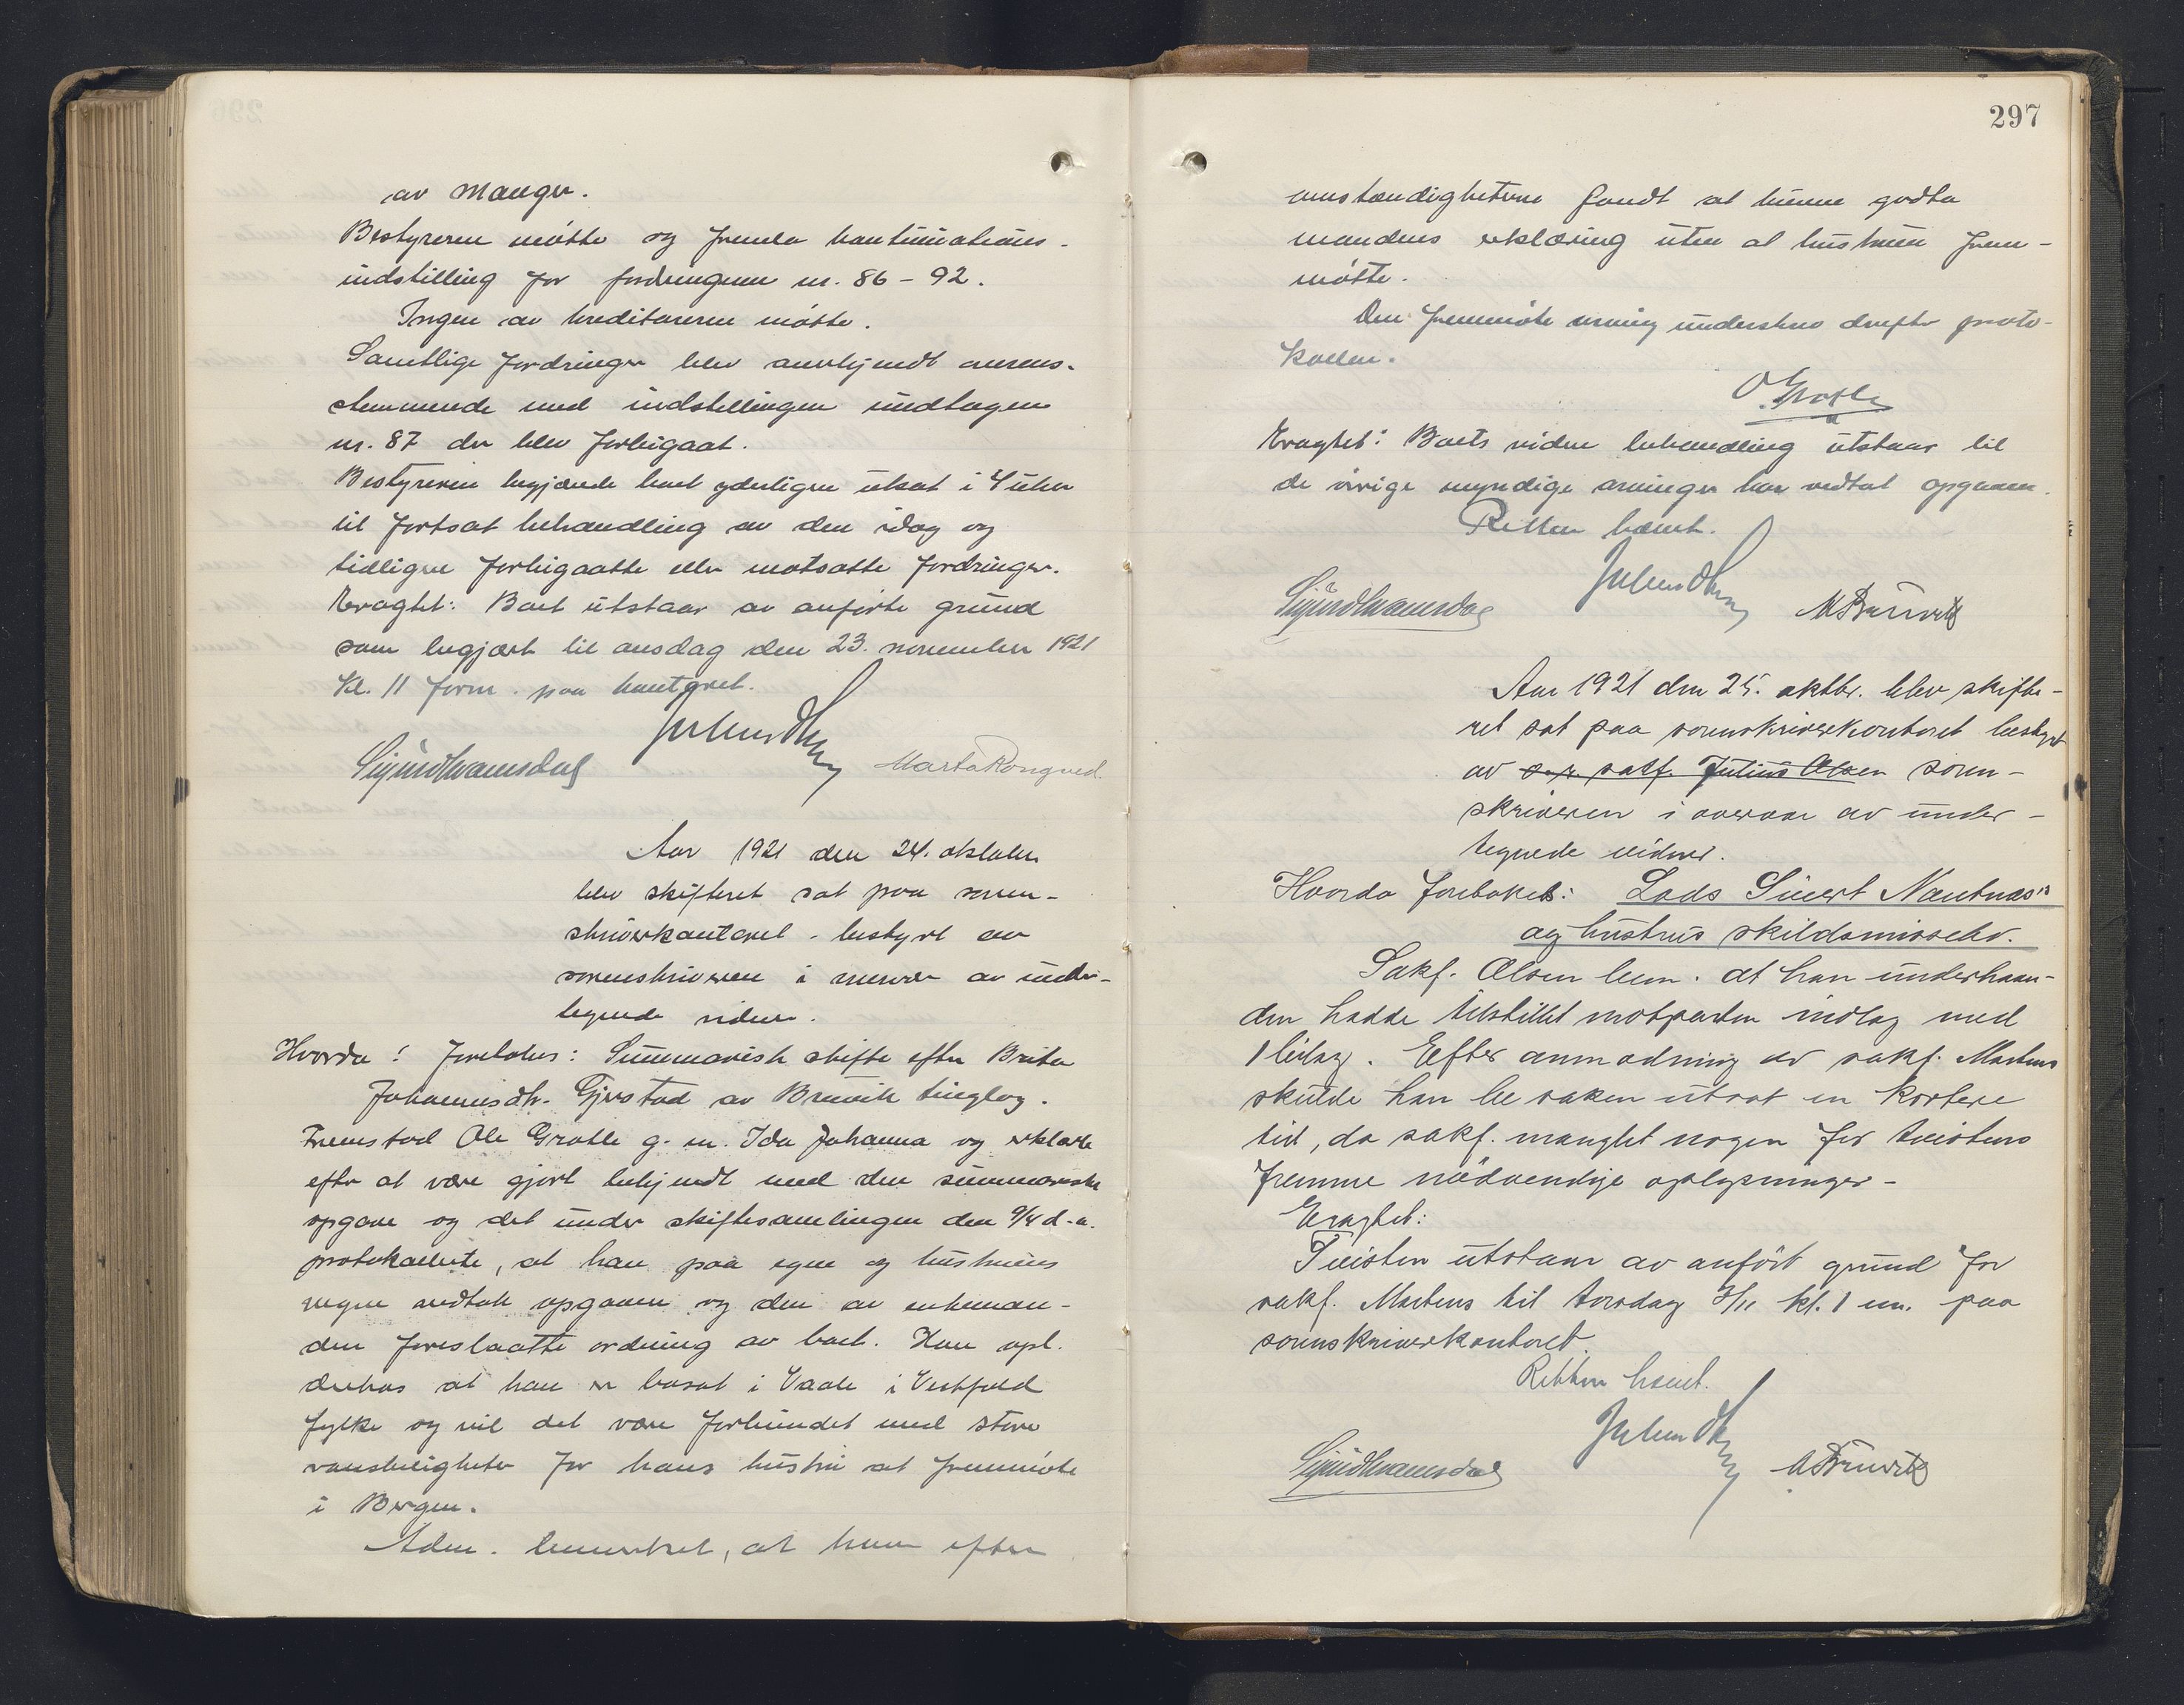 av Manger.
Bestyreren møtte og fremla kontinuations-
indstilling for fordringene nr. 86 – 92.
Ingen av kreditorerne møtte.
Samtlige fordringer blev anerkjendt overens-
stemmende med indstillingen undtagen
nr. 87 der blev forbigaat.
Bestyreren begjærede boet yderligere utsat i 4 uker
til fortsat behandling av den idag og
tidligere forbigaatte eller motsatte fordringer.
Eragtet: Boet utstaar av anførte grund
som begjært til onsdag den 23. november 1921
Kl. 11 form. paa kontoret.
Sigurd Kvamsdal Marta Rongved
Aar 1921 den 24. oktober
blev skifteret sat paa soren-
skriverkontoret bestyrt av
sorenskriveren i overvær av under-
tegnede vidner.
Hvorda! foretokes: Summarisk skifte efter Brita
Johannesdtr. Gjerstad av Bruvik tinglag.
Fremstod Ole Grotle g. m. Ida Johanna og erklærte
efter at være gjort bekjendt med den summariske
opgave og det under skiftesamlingen den 9/4 d. a.
protokollerte, at han paa egne og hustrues
vegne vedtok opgaven og den av enkeman-
den foreslaatte ordning av boet. Han opl.
derhos at han er bosat i Vaale i Vestfold
fylke og vil det være forbundet med store
vanskeligheter for hans hustru at fremmøte
i Bergen.
Adm. bemerket, at han efter
297
omstændigheterne fandt at kunne godta
mandens erklæring uten at hustruen frem-
møtte.
Den fremmøtte arving underskrev derefter proto-
kollen.
O Grotle
Eragtet: Boets videre behandling utstaar til
de øvrige myndige arvinger har vedtat opgaven.
Retten hævet.
Sigurd Kvamsdal
Aar 1921 den 25. oktbr. blev skifte-
ret sat paa sorenskriverkontoret bestyret
av o.r. sakf. Julius Olsen soren-
skriveren i overvær av under-
tegnede vidner.
Hvorda foretokes: Lods Sivert Nautnæs's
og hustrus skilsmissebo.
Sakf. Olsen bem. at han underhaan-
den hadde tilstillet motparten indlæg med
1 bilag. Efter anmodning av sakf. Martens
skulde han be saken utsat en kortere
tid, da sakf. manglet nogen for tvistens
fremme nødvendige oplysninger –
Eragtet:
Tvisten utstaar av anført grund for
sakf. Martens til torsdag 3/11 kl. 1 em. paa
sorenskriverkontoret.
Retten hævet.
Sigurd Kvamsdal